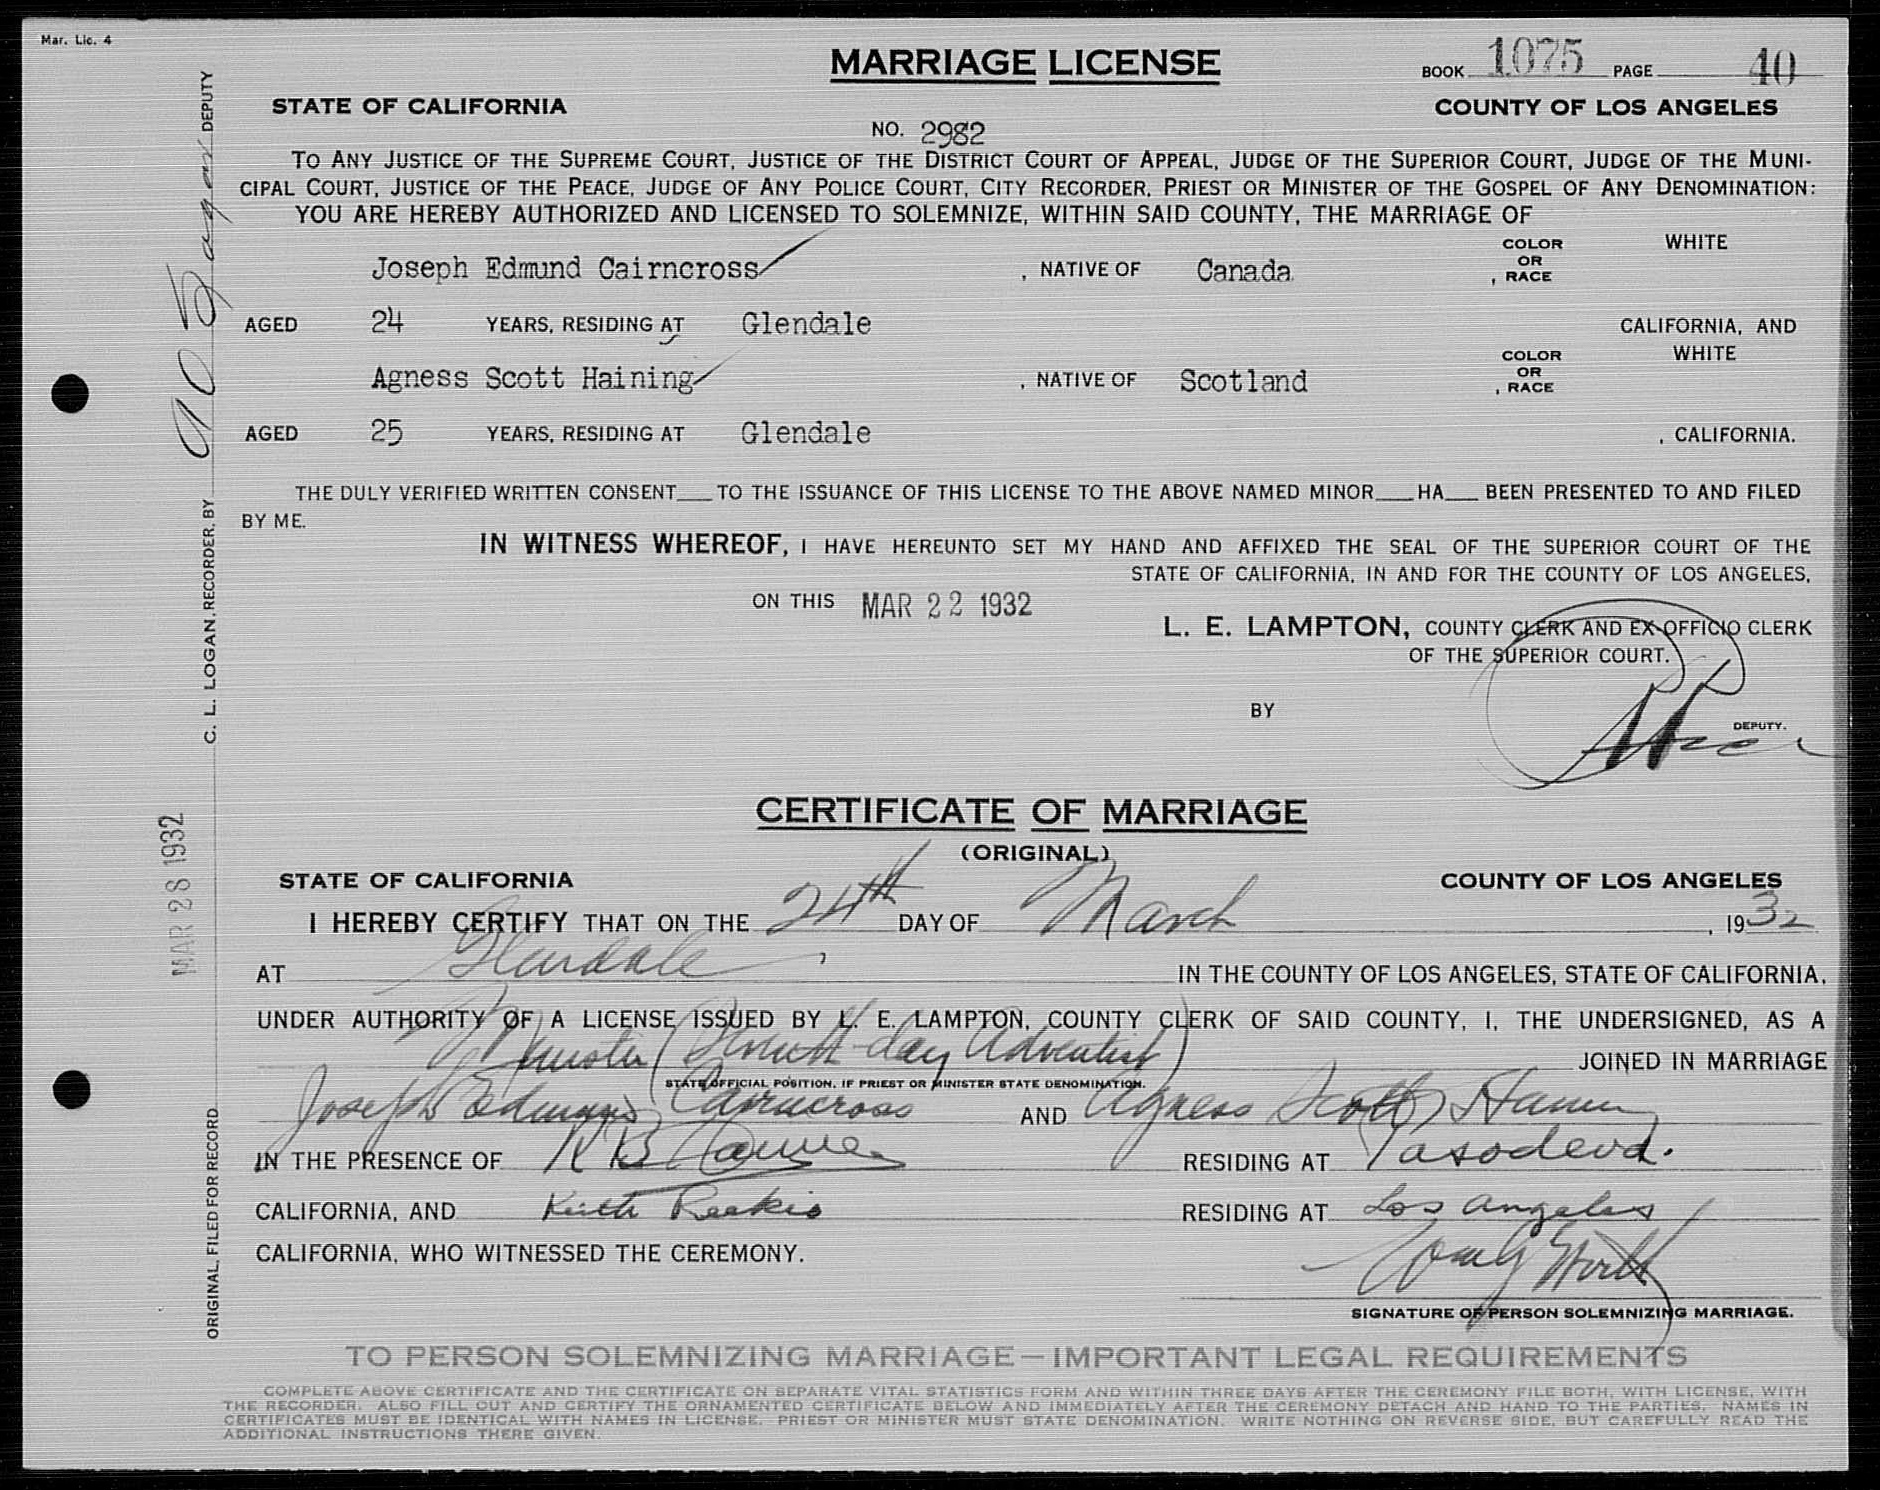 Mar. Lic. 4
MARRIAGE LICENSE
BOOK 1075 PAGE 40
STATE OF CALIFORNIA
COUNTY OF LOS ANGELES
NO. 2982
TO ANY JUSTICE OF THE SUPREME COURT, JUSTICE OF THE DISTRICT COURT OF APPEAL, JUDGE OF THE SUPERIOR COURT, JUDGE OF THE MUNI-
CIPAL COURT, JUSTICE OF THE PEACE, JUDGE OF ANY POLICE COURT, CITY RECORDER, PRIEST OR MINISTER OF THE GOSPEL OF ANY DENOMINATION:
YOU ARE HEREBY AUTHORIZED AND LICENSED TO SOLEMNIZE, WITHIN SAID COUNTY, THE MARRIAGE OF
Joseph Edmund Cairncross, NATIVE OF Canada, COLOR OR RACE WHITE
AGED 24 YEARS, RESIDING AT Glendale CALIFORNIA, AND
Agness Scott Haining, NATIVE OF Scotland, COLOR OR RACE WHITE
AGED 25 YEARS, RESIDING AT Glendale, CALIFORNIA.
THE DULY VERIFIED WRITTEN CONSENT___ TO THE ISSUANCE OF THIS LICENSE TO THE ABOVE NAMED MINOR___ HA___ BEEN PRESENTED TO AND FILED
BY ME.
IN WITNESS WHEREOF, I HAVE HEREUNTO SET MY HAND AND AFFIXED THE SEAL OF THE SUPERIOR COURT OF THE
STATE OF CALIFORNIA, IN AND FOR THE COUNTY OF LOS ANGELES,
ON THIS MAR 22 1932
L. E. LAMPTON, COUNTY CLERK AND EX-OFFICIO CLERK
OF THE SUPERIOR COURT.
BY
DEPUTY.
CERTIFICATE OF MARRIAGE
(ORIGINAL)
STATE OF CALIFORNIA
COUNTY OF LOS ANGELES
I HEREBY CERTIFY THAT ON THE 24th DAY OF March, 1932
AT Glendale, IN THE COUNTY OF LOS ANGELES, STATE OF CALIFORNIA,
UNDER AUTHORITY OF A LICENSE ISSUED BY L. E. LAMPTON, COUNTY CLERK OF SAID COUNTY, I, THE UNDERSIGNED, AS A
Minister (Seventh-day Adventist) JOINED IN MARRIAGE
STATE OFFICIAL POSITION. IF PRIEST OR MINISTER STATE DENOMINATION.
Joseph Edmund Cairncross AND Agness Scott Haining
IN THE PRESENCE OF RESIDING AT Pasadena.
CALIFORNIA, AND Keith RESIDING AT Los Angeles
CALIFORNIA, WHO WITNESSED THE CEREMONY.
SIGNATURE OF PERSON SOLEMNIZING MARRIAGE.
TO PERSON SOLEMNIZING MARRIAGE—IMPORTANT LEGAL REQUIREMENTS
COMPLETE ABOVE CERTIFICATE AND THE CERTIFICATE ON SEPARATE VITAL STATISTICS FORM AND WITHIN THREE DAYS AFTER THE CEREMONY FILE BOTH, WITH LICENSE, WITH
THE RECORDER. ALSO FILL OUT AND CERTIFY THE ORNAMENTED CERTIFICATE BELOW AND IMMEDIATELY AFTER THE CEREMONY DETACH AND HAND TO THE PARTIES. NAMES IN
CERTIFICATES MUST BE IDENTICAL WITH NAMES IN LICENSE. PRIEST OR MINISTER MUST STATE DENOMINATION. WRITE NOTHING ON REVERSE SIDE, BUT CAREFULLY READ THE
ADDITIONAL INSTRUCTIONS THERE GIVEN.
ORIGINAL, FILED FOR RECORD MAR 28 1932 C. L. LOGAN, RECORDER, BY DEPUTY